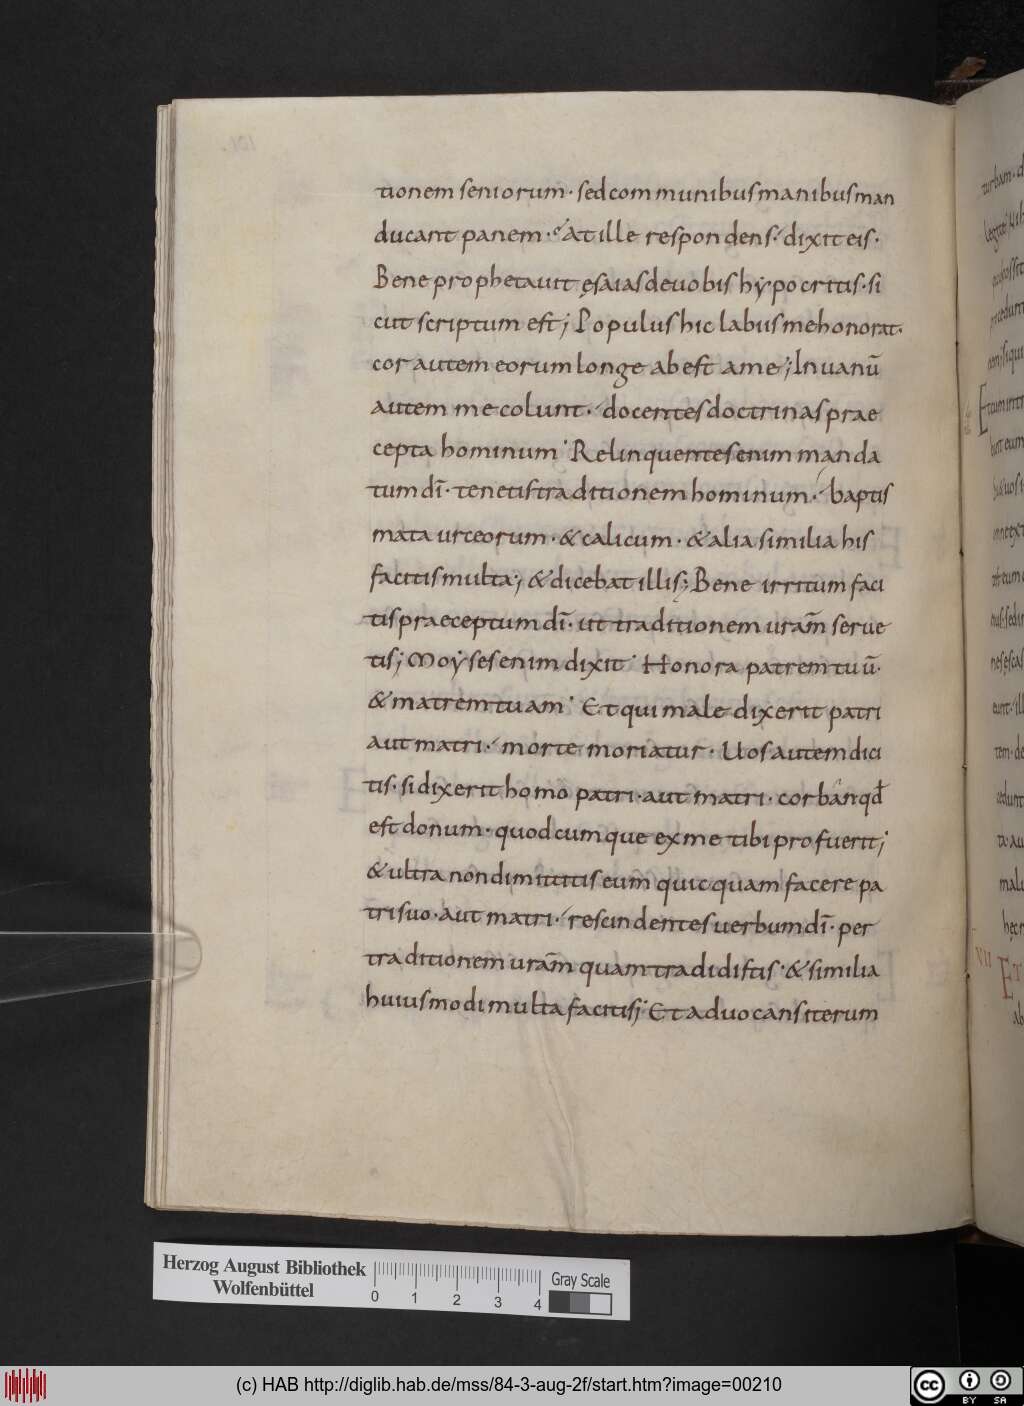 tionem seniorum · sed communibus manibus man
ducant panem · At ille respondens · dixit eis ·
Bene prophetavit ęsaias de uobis hẏpocritis · si
cut scriptum est ; Populus hic labiis me honorat ·
cor autem eorum longe abest a me ; In uanū
autem me colunt · docentes doctrinas prae
cepta hominum · Relinquentes enim manda
tum dī · tenetis traditionem hominum · baptis
mata urceorum · & calicum · & alia similia his
facitis multa ; & dicebat illis ; Bene irritum faci
tis praeceptum dī · ut traditionem urām serue
tis ; Moẏses enim dixit · Honora patrem tuū ·
& matrem tuam · Et qui male dixerit patri
aut matri · morte moriatur · Uos autem dici
tis · si dixerit homo patri · aut matri · corbân qđ
est donum · quodcumque ex me tibi profuerit ;
& ultra non dimittitis eum quicquam facere pa
tri suo · aut matri · rescindentes uerbum dī · per
traditionem urām quam tradidistis · & similia
huiusmodi multa facitis ; Et aduocans iterum
Herzog August Bibliothek
Wolfenbüttel
0 1 2 3 4
Gray Scale
(c) HAB http://diglib.hab.de/mss/84-3-aug-2f/start.htm?image=00210
cc BY SA